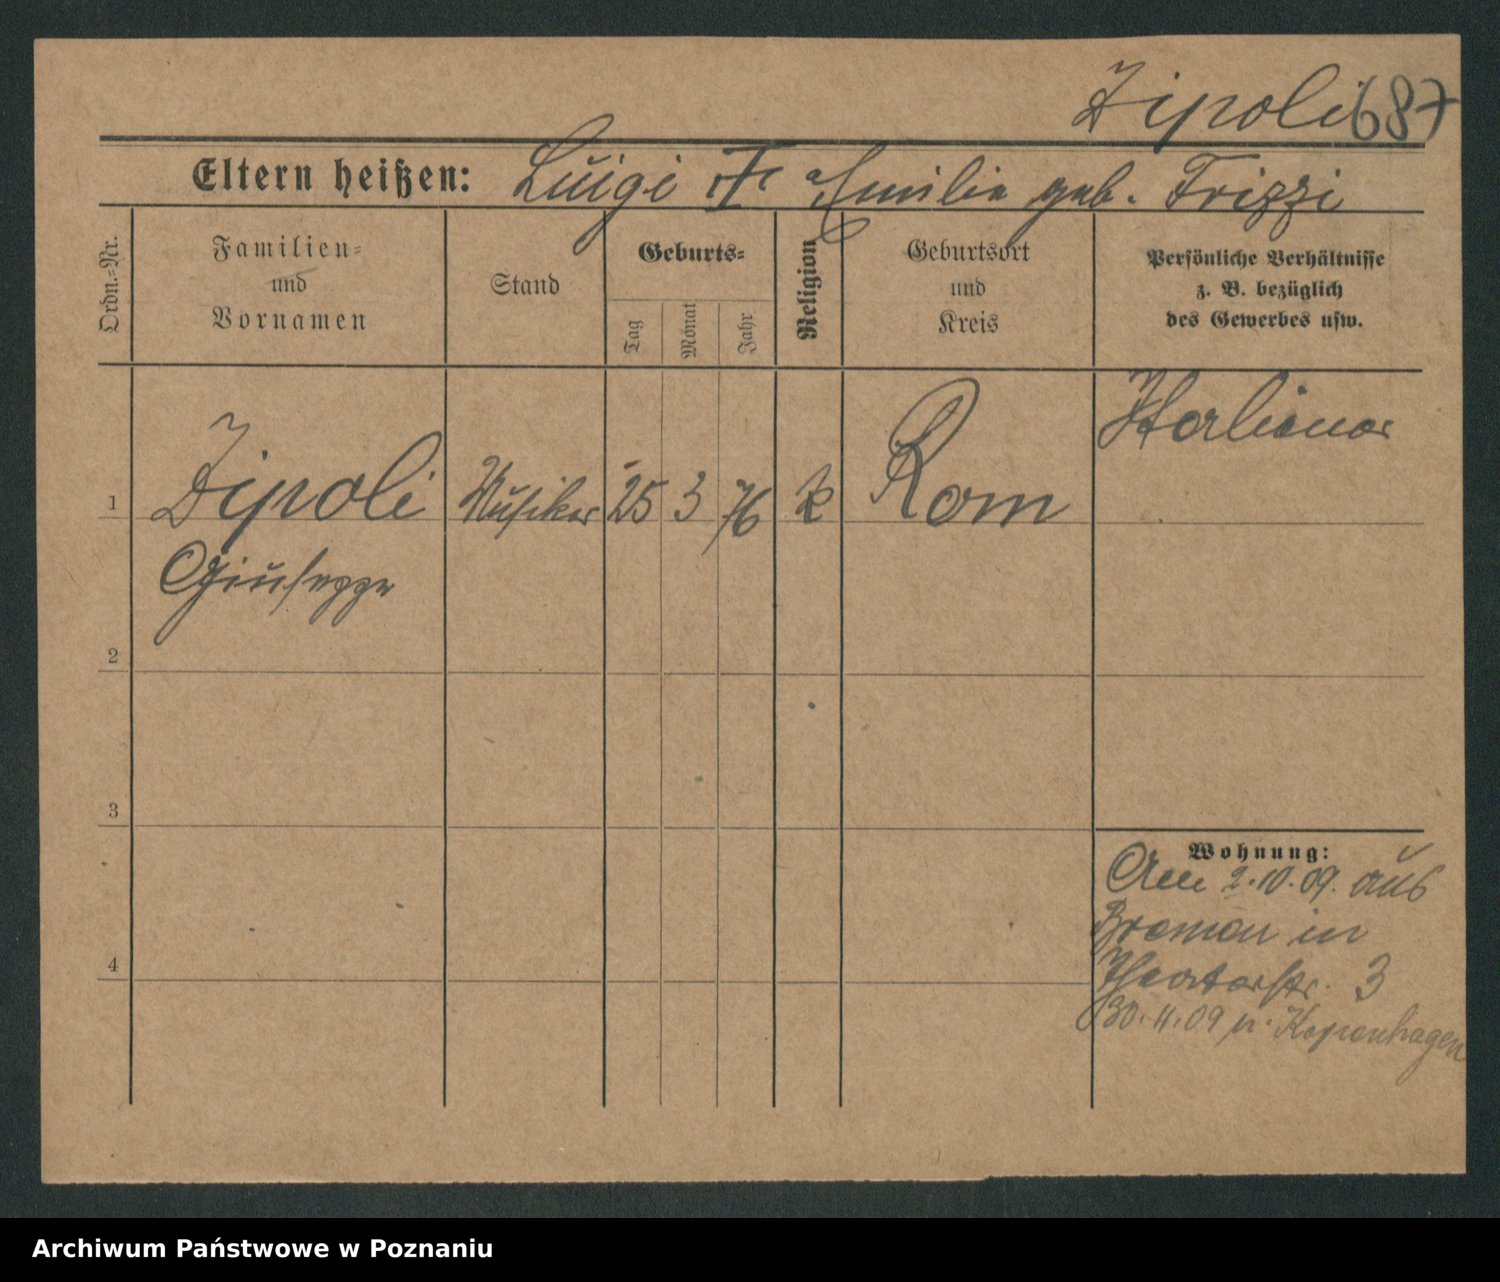 Zipoli 687
Eltern heißen: Luigi u. Emilie geb. Frizzi
Ordn.=Nr.
Familien=
und
Vornamen
Stand
Geburts=
Tag
Monat
Jahr
Religion
Geburtsort
und
Kreis
Persönliche Verhältnisse
z. B. bezüglich
des Gewerbes usw.
1 Zipoli Musiker 25 3 76 k Rom Italiener
Giuseppe
2
3
4
Wohnung:
Am 2.10.09. aus
Bremen in
Theaterstr. 3
30.11.09 n. Kopenhagen
Archiwum Państwowe w Poznaniu